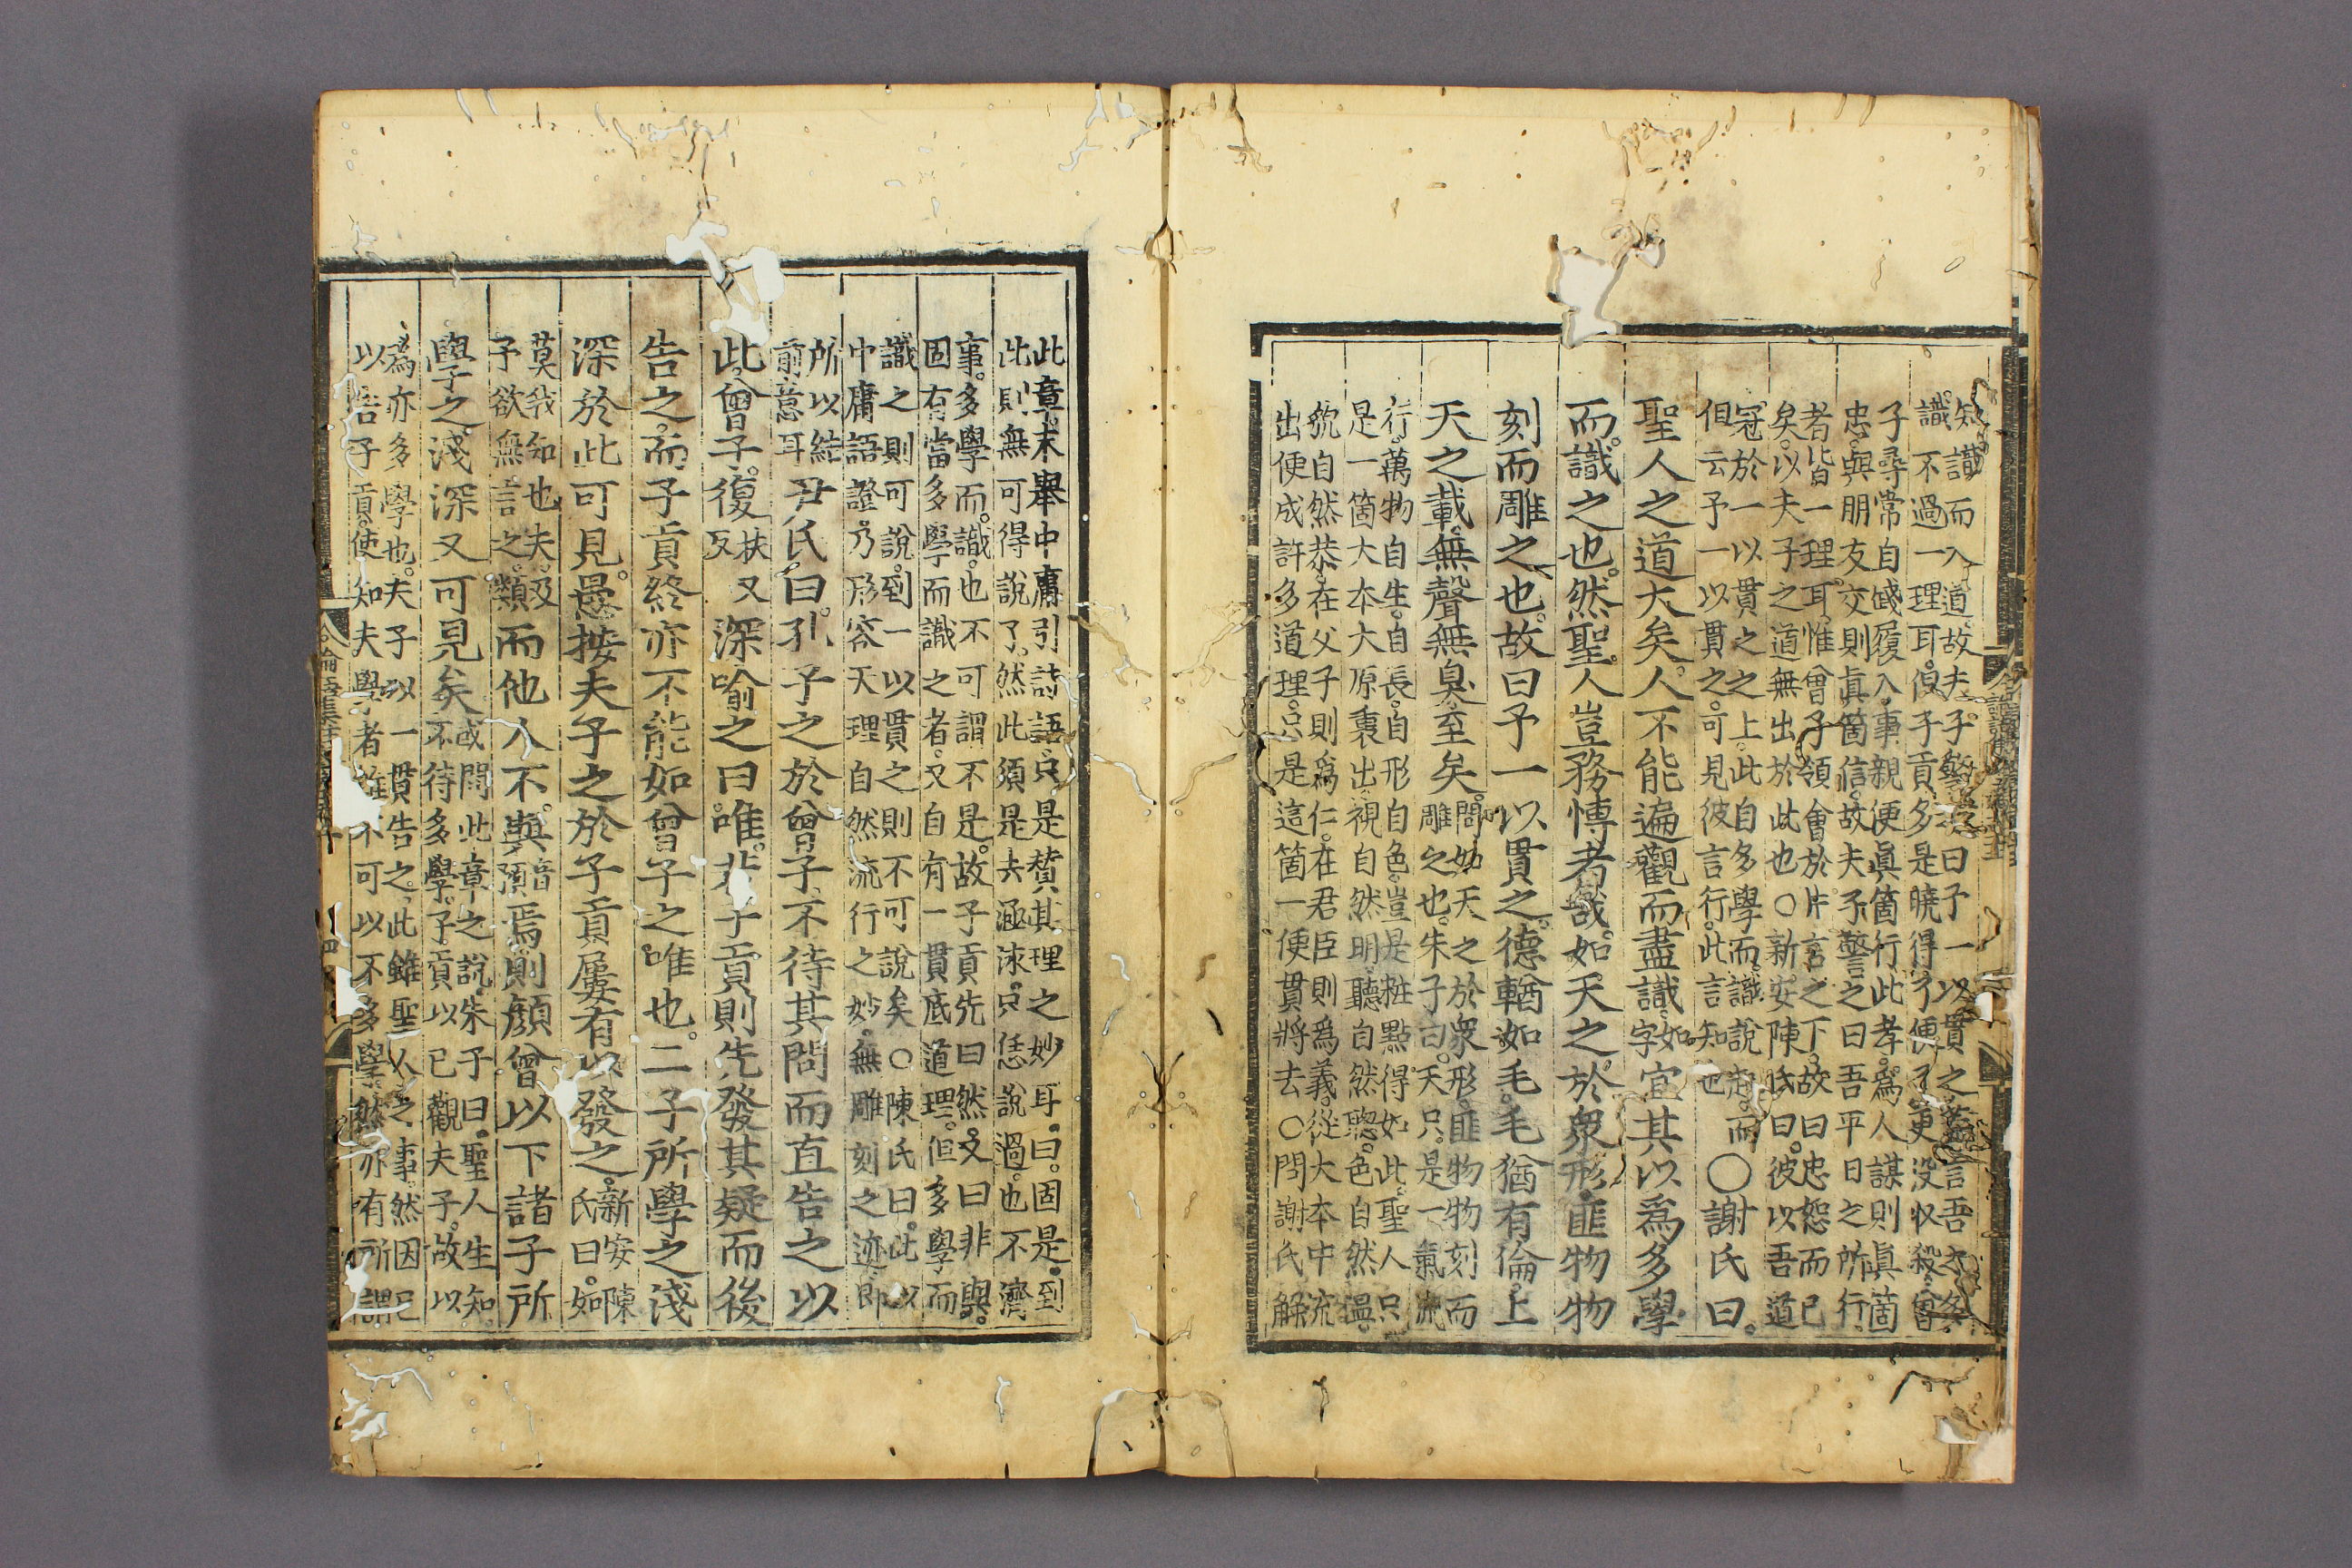 知識而入道故夫子警之曰予一以貫之蓋言吾之多
識不過一理耳但子貢多是曉得了便了更没收殺曾
子尋常自踐履入事親便眞箇行此孝爲人謀則眞箇
忠與朋友交則眞箇信故夫子警之曰吾平日之所行
者皆一理耳惟曾子領會於片言之下故曰忠恕而已
矣以夫子之道無出於此也○新安陳氏曰彼以吾道
冠於一以貫之之上此自多學而識說起而
但云予一以貫之可見彼言行此言知也
○謝氏曰
聖人之道大矣人不能遍觀而盡識如字宜其以爲多學
而識之也然聖人豈務愽者哉如天之於衆形匪物物
刻而雕之也故曰予一以貫之德輶如毛毛猶有倫上
天之載無聲無臭至矣
問如天之於衆形匪物物刻而
雕之也朱子曰天只是一氣流
行萬物自生自長自形自色豈是粧點得如此聖人只
是一箇大本大原裏出視自然明聽自然聰色自然溫
貌自然恭在父子則爲仁在君臣則爲義從大本中流
出便成許多道理只是這箇一便貫將去○問謝氏解
此章末舉中庸引詩語只是賛其理之妙耳曰固是到
此則無可得說了然此須是去涵泳只恁說過也不濟
事多學而識也不可謂不是故子貢先曰然又曰非與
固有當多學而識之者又自有一貫底道理但多學而
識之則可說到一以貫之則不可說矣○陳氏曰此以
中庸語證乃形容天理自然流行之妙無雕刻之迹卽
所以結
前意耳
尹氏曰孔子之於曾子不待其問而直告之以
此曾子復扶又反又深喻之曰唯若子貢則先發其疑而後
告之而子貢終亦不能如曾子之唯也二子所學之淺
深於此可見愚按夫子之於子貢屢有以發之
新安陳
氏曰如
莫我知也夫及
予欲無言之類
而他人不與音預焉則顏曾以下諸子所
學之淺深又可見矣
或問此章之說朱子曰聖人生知
不待多學子貢以已觀夫子故以
爲亦多學也夫子以一貫告之此雖聖人之事然因已
以告子貢使知夫學者雖不可以不多學然亦有所謂